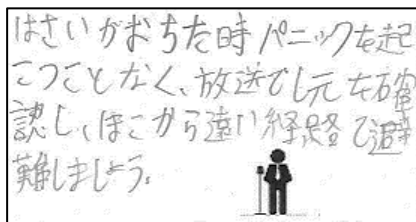 はさいがおちた時パニックを起
こつことなく、放送でし元を確
認し、ほこから遠い経路で避
難しましょう。